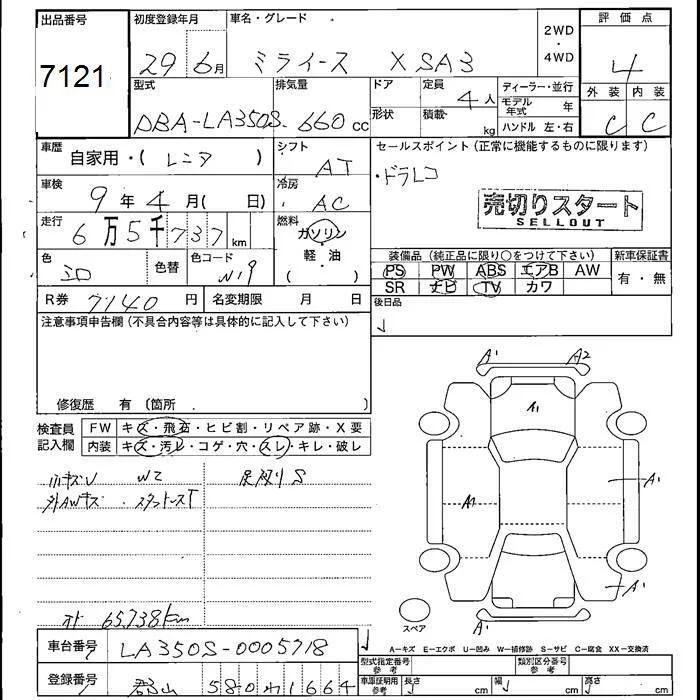 出品番号 初度登録年月 車名・グレード 2WD・4WD 評価点
7121 29 6月 ミライース X SA3 4
型式 排気量 ドア 定員 4人 ディーラー・並行 外装 内装
DBA-LA350S 660 cc 形状 積載 kg モデル年式 年 ハンドル 左・右 C C
車歴 自家用・( レンタ ) シフト AT セールスポイント (正常に機能するものに限ります)
車検 9年4月( 日) 冷房 AC ・ドラレコ
走行 6万5千737 km 燃料 ガソリン・軽油・( ) 売切りスタート
SELLOUT
色 シロ 色替 色コード W19 装備品 (純正品に限り○をつけて下さい) 新車保証書
PS PW ABS エアB AW 有・無
SR ナビ TV カワ
R券 7140 円 名変期限 月 日 後日品
注意事項申告欄 (不具合内容等は具体的に記入して下さい)
修復歴 有 (箇所 )
検査員記入欄 FW キズ・飛石・ヒビ割・リペア跡・X要
内装 キズ・汚レ・コゲ・穴・スレ・キレ・破レ
小キズU W2
外AWキズ・スタッドレスT
65,738km
A1 A2
A1
A1 A1
A1
スペア
車台番号 LA350S-0005718
A-キズ E-エクボ U-凹み W-補修跡 S-サビ C-腐食 XX-交換済
型式指定番号 参考 類別区分番号 参考
登録番号 郡山 580 わ 1664
車庫証明用 参考 長さ cm 幅 cm 高さ cm